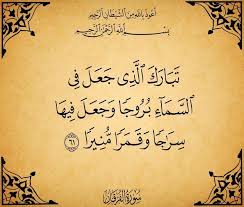 أعوذ بالله من الشيطان الرجيم
بسم الله الرحمن الرحيم
تَبَارَكَ ٱلَّذِى جَعَلَ فِى
ٱلسَّمَآءِ بُرُوجًا وَجَعَلَ فِيهَا
سِرَٰجًا وَقَمَرًا مُّنِيرًا ٦١
سورة الفرقان